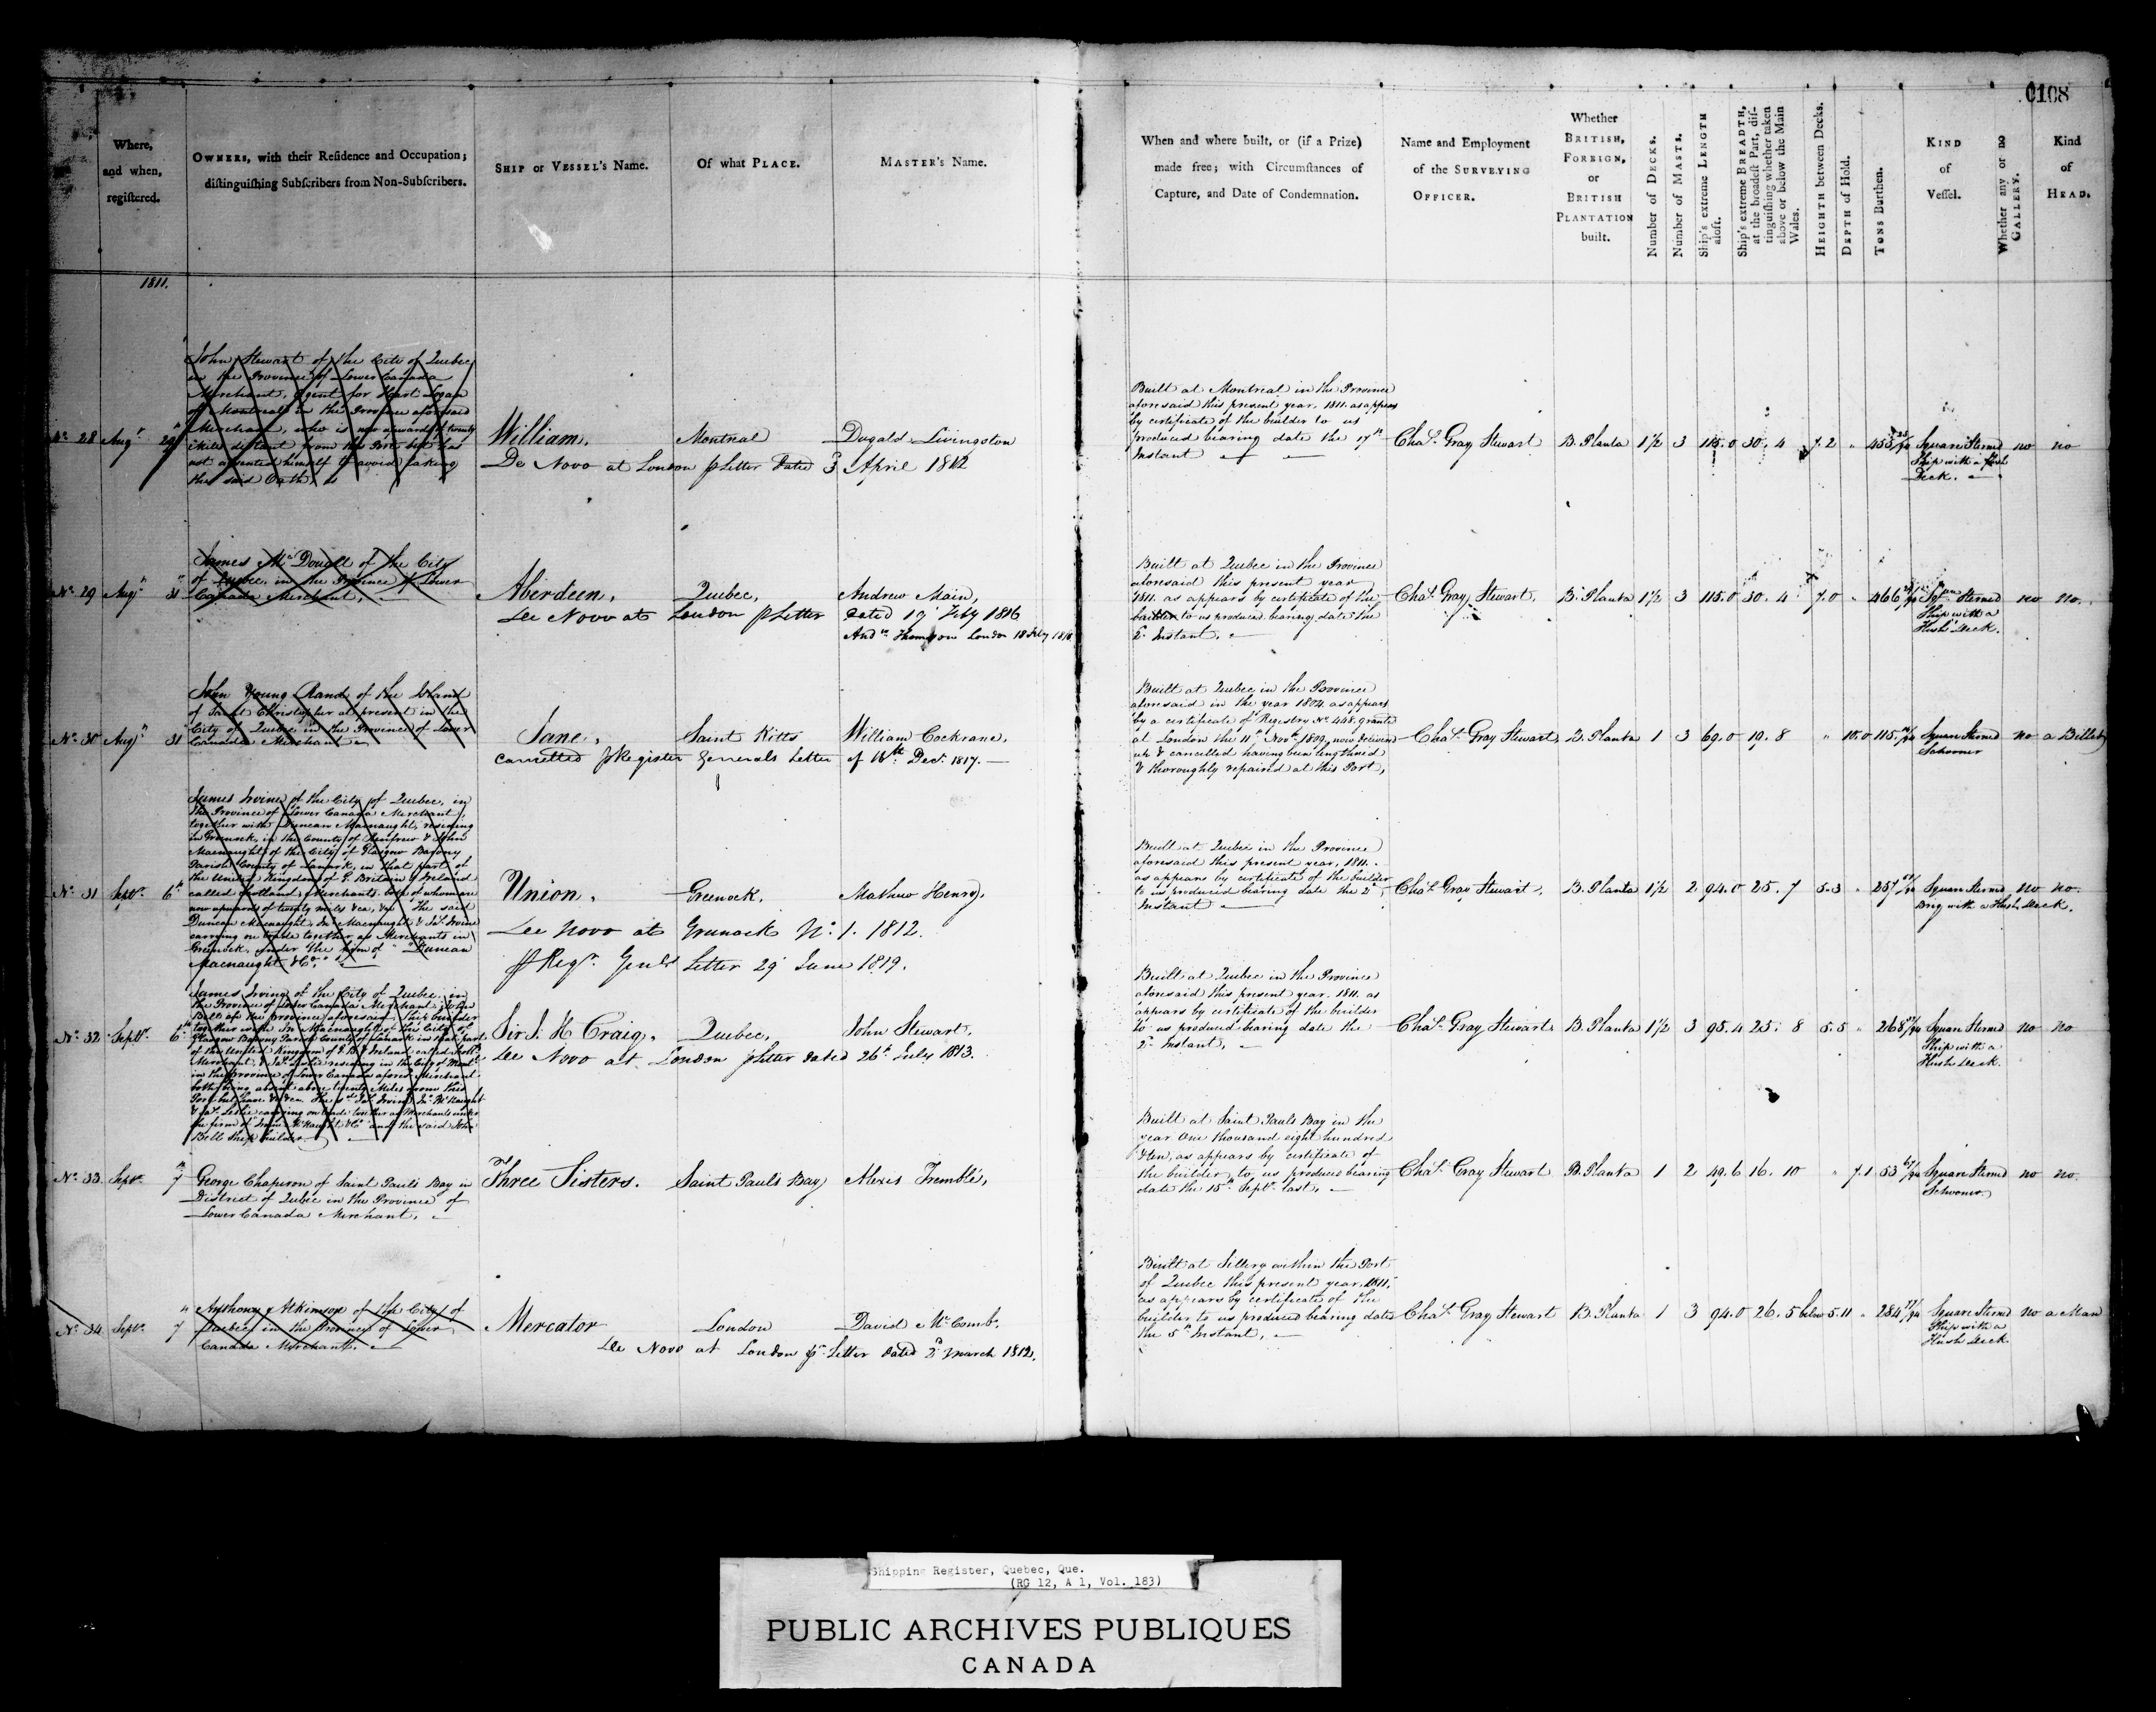 0108
Where,
and when,
registered.
OWNERS, with their Residence and Occupation;
distinguishing Subscribers from Non-Subscribers.
SHIP or VESSEL's Name.
Of what PLACE.
MASTER's Name.
When and where built, or (if a Prize)
made free; with Circumstances of
Capture, and Date of Condemnation.
Name and Employment
of the SURVEYING
OFFICER.
Whether
BRITISH,
FOREIGN,
or
BRITISH
PLANTATION
built.
Number of DECKS.
Number of MASTS.
Ship's extreme LENGTH
aloft.
Ship's extreme BREADTH,
at the broadest Part, dis-
tinguishing whether taken
above or below the Main
Wales.
HEIGHTH between Decks.
DEPTH of Hold.
TONS Burthen.
KIND
of
Vessel.
Whether any or no
GALLERY.
Kind
of
HEAD.
1811.
No. 28 Augt. 29th
John Stewart of the City of Quebec
in the Province of Lower Canada
Merchant, Agent for Hart Logan
of Montreal in the Province aforesaid
Merchant, who is now upwards of twenty
Miles distant from this Port but has
not absented himself to avoid taking
the said Oath,
William, Montreal Dugald Livingston
De Novo at London p Letter Dated 3 April 1812
Built at Montreal in the Province
aforesaid this present year, 1811. as appears
by certificate of the builder to us
produced bearing date the 17th
Instant
Chas. Gray Stewart B. Planta 1½ 3 115.0 30. 4 7. 2 no no
Square Sterned
Ship with a flush
Deck.
No. 29 Augt. 31
James McDouall of the City
of Quebec, in the Province of Lower
Canada Merchant,
Aberdeen, Quebec, Andrew Main,
Dee Novo at London p Letter Dated 19 Feby 1816
Andw Thompson London 18 July 1818
Built at Quebec in the Province
aforesaid this present year
1811. as appears by certificate of the
builder to us produced bearing date the
2d Instant,
Chas. Gray Stewart, B. Planta 1½ 3 115.0 30. 4 7.0 466 Sqare Sterned no no.
Ship with a
Flush Deck.
No. 30 Augt. 31
John Young Rand of the Island
of Saint Christopher at present in the
City of Quebec in the Province of Lower
Canada Merchant
Jane, Saint Kitts William Cockrane,
Cancelled p Register Generals Letter of 16th Decr. 1817.
Built at Quebec in the Province
aforesaid in the year 1804. as appears
by a certificate of Registry No. 448. granted
at London the 11th Novr. 1809, now delivered
up & cancelled having been lengthened
& thoroughly repaired at this Port,
Chas. Gray Stewart, B. Planta 1 3 69.0 19. 8 10.0 115 Square Sterned no a Billet
Schooner
No. 31 Septr. 6th
James Irvine of the City of Quebec, in
the Province of Lower Canada Merchant,
together with Duncan Macnaught, residing
in Greenock, in the County of Renfrew & John
Macnaught of the City of Glasgow Barony
Parish County of Lanark, in that part of
the United Kingdom of G. Britain & Ireland
called Scotland, Merchants, both of whom are
now upwards of twenty miles &ca, &ca The said
Duncan Macnaught, Jno. Macnaught & Jas. Irvine
carrying on trade together as Merchants in
Greenock, under the firm of "Duncan
Macnaught & Co."
Union, Greenock, Mathew Henry,
Dee Novo at Greenock No. 1. 1812.
p Regr. Genls Letter 29 June 1819.
Built at Quebec in the Province
aforesaid this present year, 1811.
as appears by certificate of the builder
to us produced bearing date the 2d
Instant
Chas. Gray Stewart, B. Planta 1½ 2 94.0 25. 7 5.3 257 Square Sterned no no.
Brig with a Flush Deck.
No. 32 Septr. 6th
James Irvine of the City of Quebec, in
the Province of Lower Canada Merchant, John
Bell of the province aforesaid, Ship builder
together with Jno. Macnaught of the City of
Glasgow Barony Parish County of Lanark in that part
of the United Kingdom of G. B. & Ireland called Scotld.
Merchant, & Jas. Leslie residing in the City of Montl.
in the Province of Lower Canada aforesd. Merchant
both being absent above twenty Miles from this
Port but have &c &ca. The sd. Jas. Irvine, Jno. McNaught
& Jas. Leslie carrying on trade together as Merchants under
the firm of Irvine McNaught & Co. and the said John
Bell Ship builder
Sir J. H Craig, Quebec, John Stewart,
Dee Novo at London p Letter dated 26th July 1813.
Built at Quebec in the Province
aforesaid this present year. 1811. as
appears by certificate of the builder
to us produced bearing date the
2d Instant,
Chas. Gray Stewart B. Planta 1½ 3 95.4 25. 8 5.5 268 Square Sterned no no
Ship with a
Flush Deck.
No. 33. Septr. 7
George Chaperon of Saint Pauls Bay in
District of Quebec in the Province of
Lower Canada Merchant,
Three Sisters. Saint Pauls Bay Alexis Tremblé,
Built at Saint Pauls Bay in the
year One thousand eight hundred
& ten, as appears by certificate of
the builder to us produced bearing
date the 15th Septr. last,
Chas. Gray Stewart B. Planta 1 2 49.6 16. 10 7.1 53 Square Sterned no no.
Schooner
No. 34 Septr. 7
Anthony Atkinson of the City of
Quebec in the Province of Lower
Canada Merchant.
Mercator London David McComb.
Dee Novo at London pr. Letter dated 2 March 1812.
Built at Sillery within the Port
of Quebec this present year, 1811,
as appears by certificate of the
builder to us produced bearing date
the 5th Instant,
Chas. Gray Stewart B. Planta 1 3 94.0 26. 5 below 5.11 284 Square Sterned no a Man
Ship with a
Flush Deck
Shipping Register, Quebec, Que.
(RG 12, A 1, Vol. 183)
PUBLIC ARCHIVES PUBLIQUES
CANADA